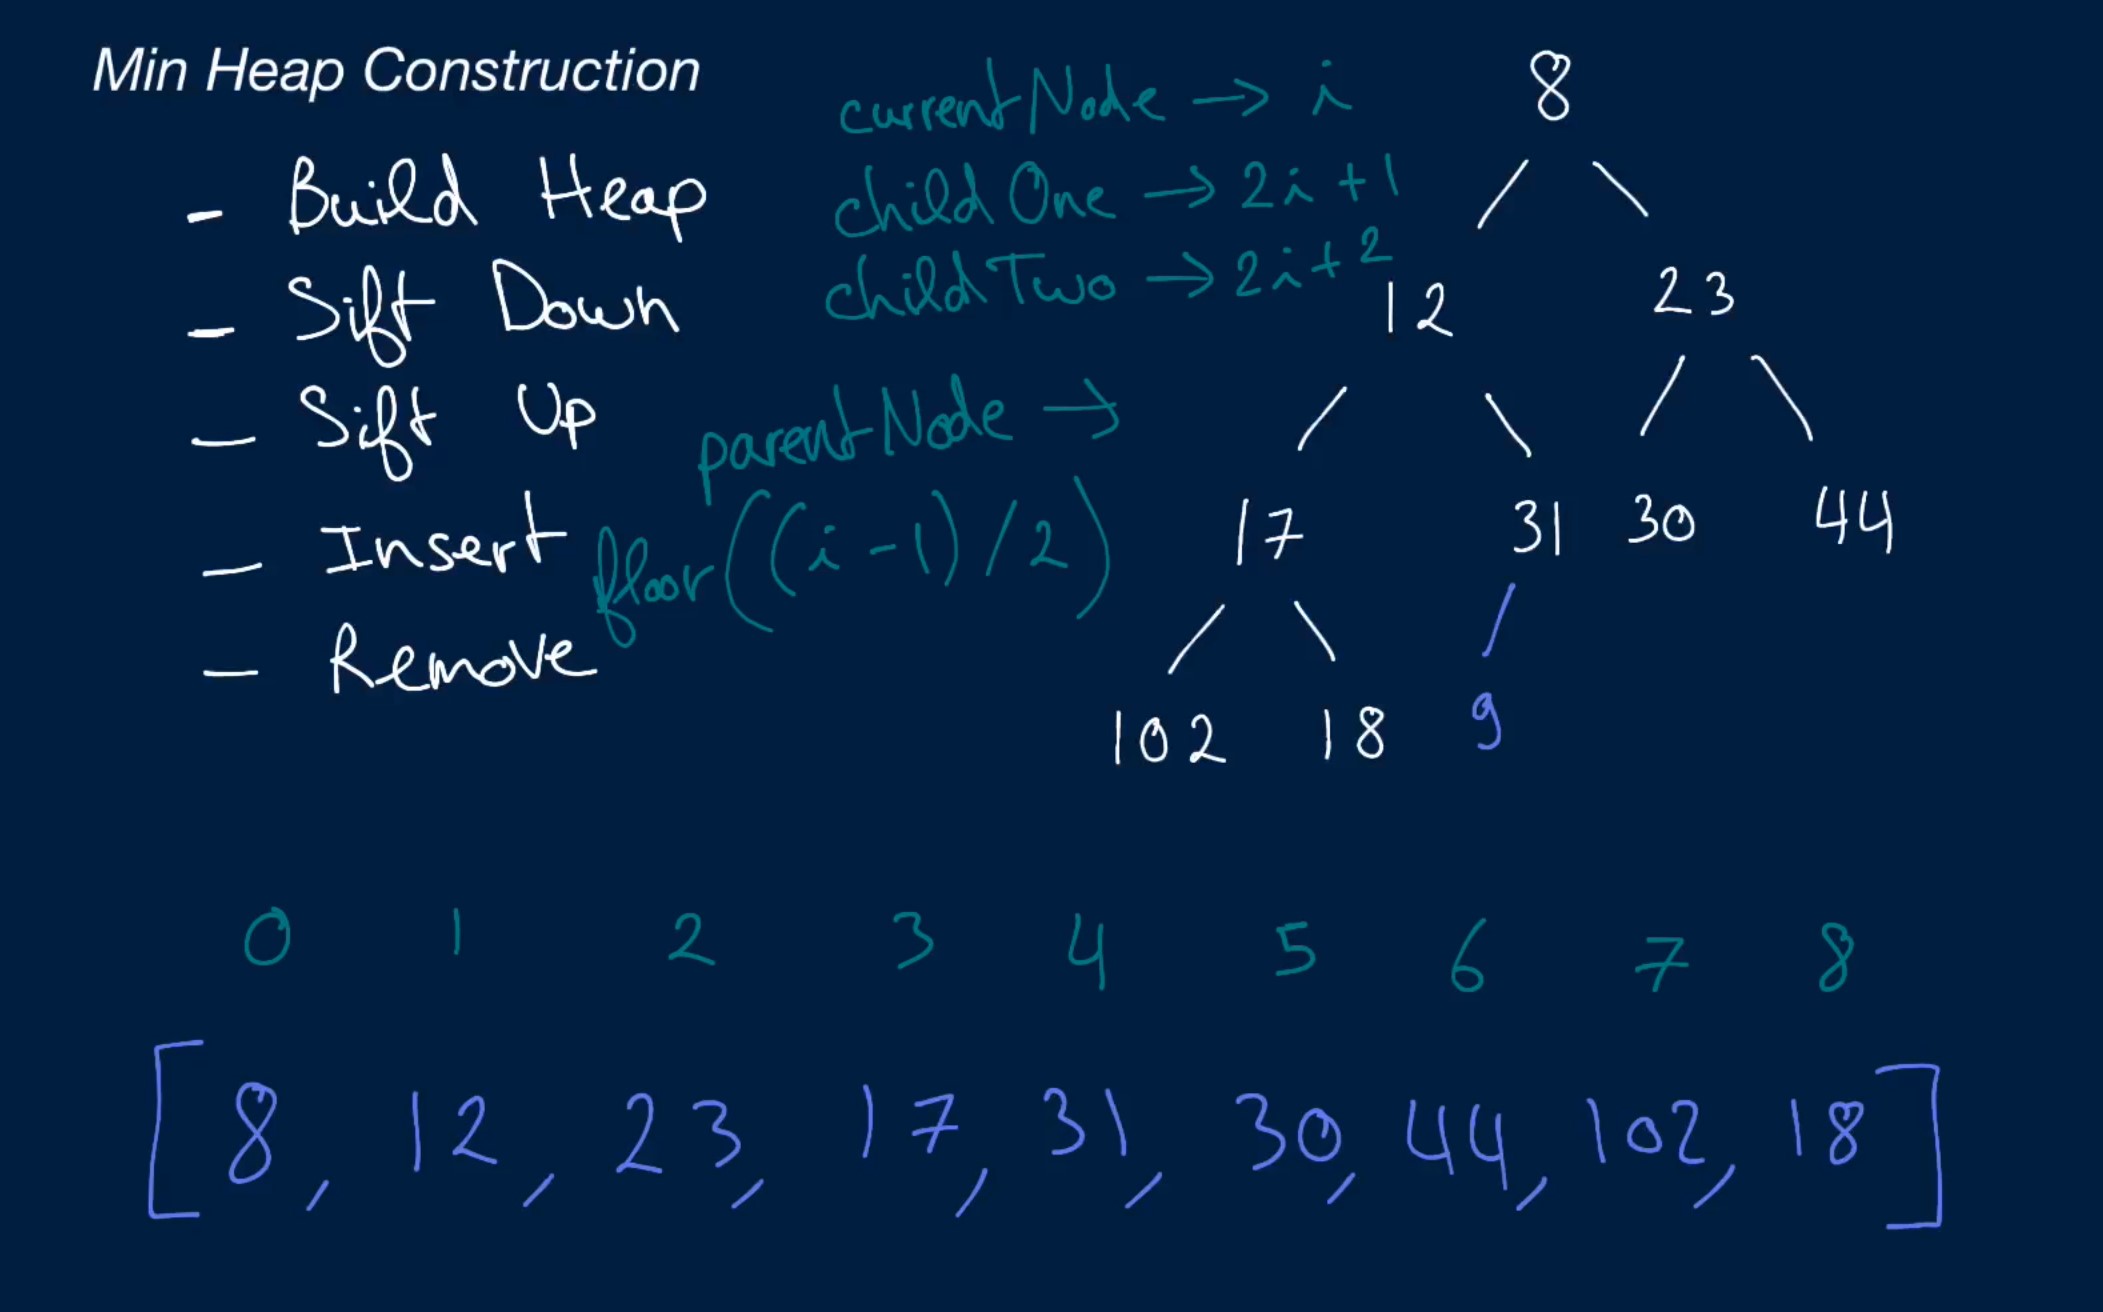 Min Heap Construction
- Build Heap
- Sift Down
- Sift Up
- Insert
- Remove
currentNode → i
childOne → 2i+1
childTwo → 2i+2
parentNode →
floor((i-1)/2)
8
12 23
17 31 30 44
102 18 9
0 1 2 3 4 5 6 7 8
[8, 12, 23, 17, 31, 30, 44, 102, 18]